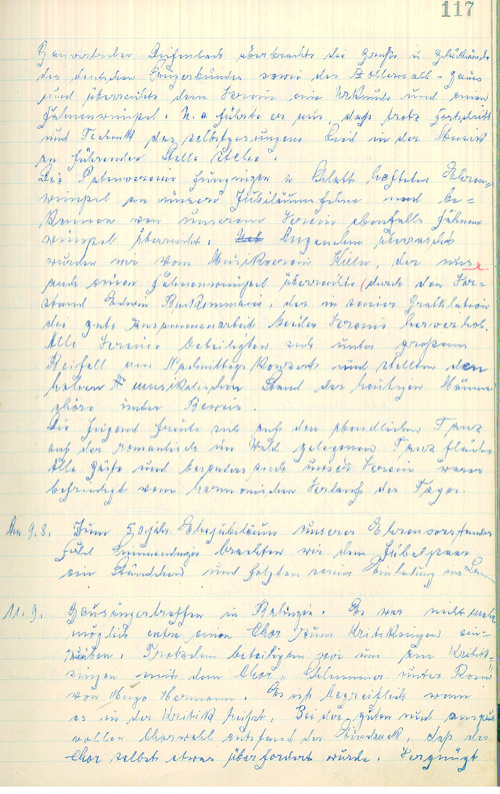 117
Gauvorsitzender überbrachte die Grüße u Glückwünsche
des deutschen Sängerbundes sowie des Zollernalb-Gaues
und überreichte dem Verein eine Urkunde und einen
Fahnenwimpel. U. a führte er aus, daß trotz Fortschritt
und Technik das selbstgesungene Lied in der
an führender Stelle stehe.
Die Patenvereine u hefteten Ehren-
wimpel an unsere Jubiläumsfahne und be-
kamen von unserem Verein ebenfalls Fahnen-
wimpel überreicht. Angenehm überrascht
wurden wir vom Musikverein, der uns
auch seinen Fahnenwimpel überreichte (durch den Vor-
stand Edwin, der in seiner Gratulation
die gute Zusammenarbeit beider Vereine hervorhob.
Alle Vereine beteiligten sich unter großem
Beifall am Nachmittagskonzert und stellten den
hohen musikalischen Stand der heutigen Männer
chöre unter Beweis.
Die Jugend freute sich auf den abendlichen Tanz
auf der romantisch im Wald gelegenen Tanzfläche
Alle Gäste und besonders auch unser Verein waren
befriedigt vom harmonischen Verlauf des Tages.
Am 9.8. Zum 50 jähr. Ehejubiläum unseres Ehrenvorstandes
brachten wir dem Jubelpaar
ein Ständchen und folgten seiner Einladung ins
11.9. Gausängertreffen in Balingen. Es war nicht mehr
möglich extra einen Chor zum Kritiksingen ein-
zuüben. Trotzdem beteiligten wir uns am Kritik-
singen mit dem Chor "Schlummer unter Rosen"
von Hugo Herrmann. Es ist begreiflich wenn
es in der Kritik heißt: Bei der guten und anspruchs-
vollen Chorwahl entstand der Eindruck, daß der
Chor selbst etwas überfordert wurde. Vergnügt